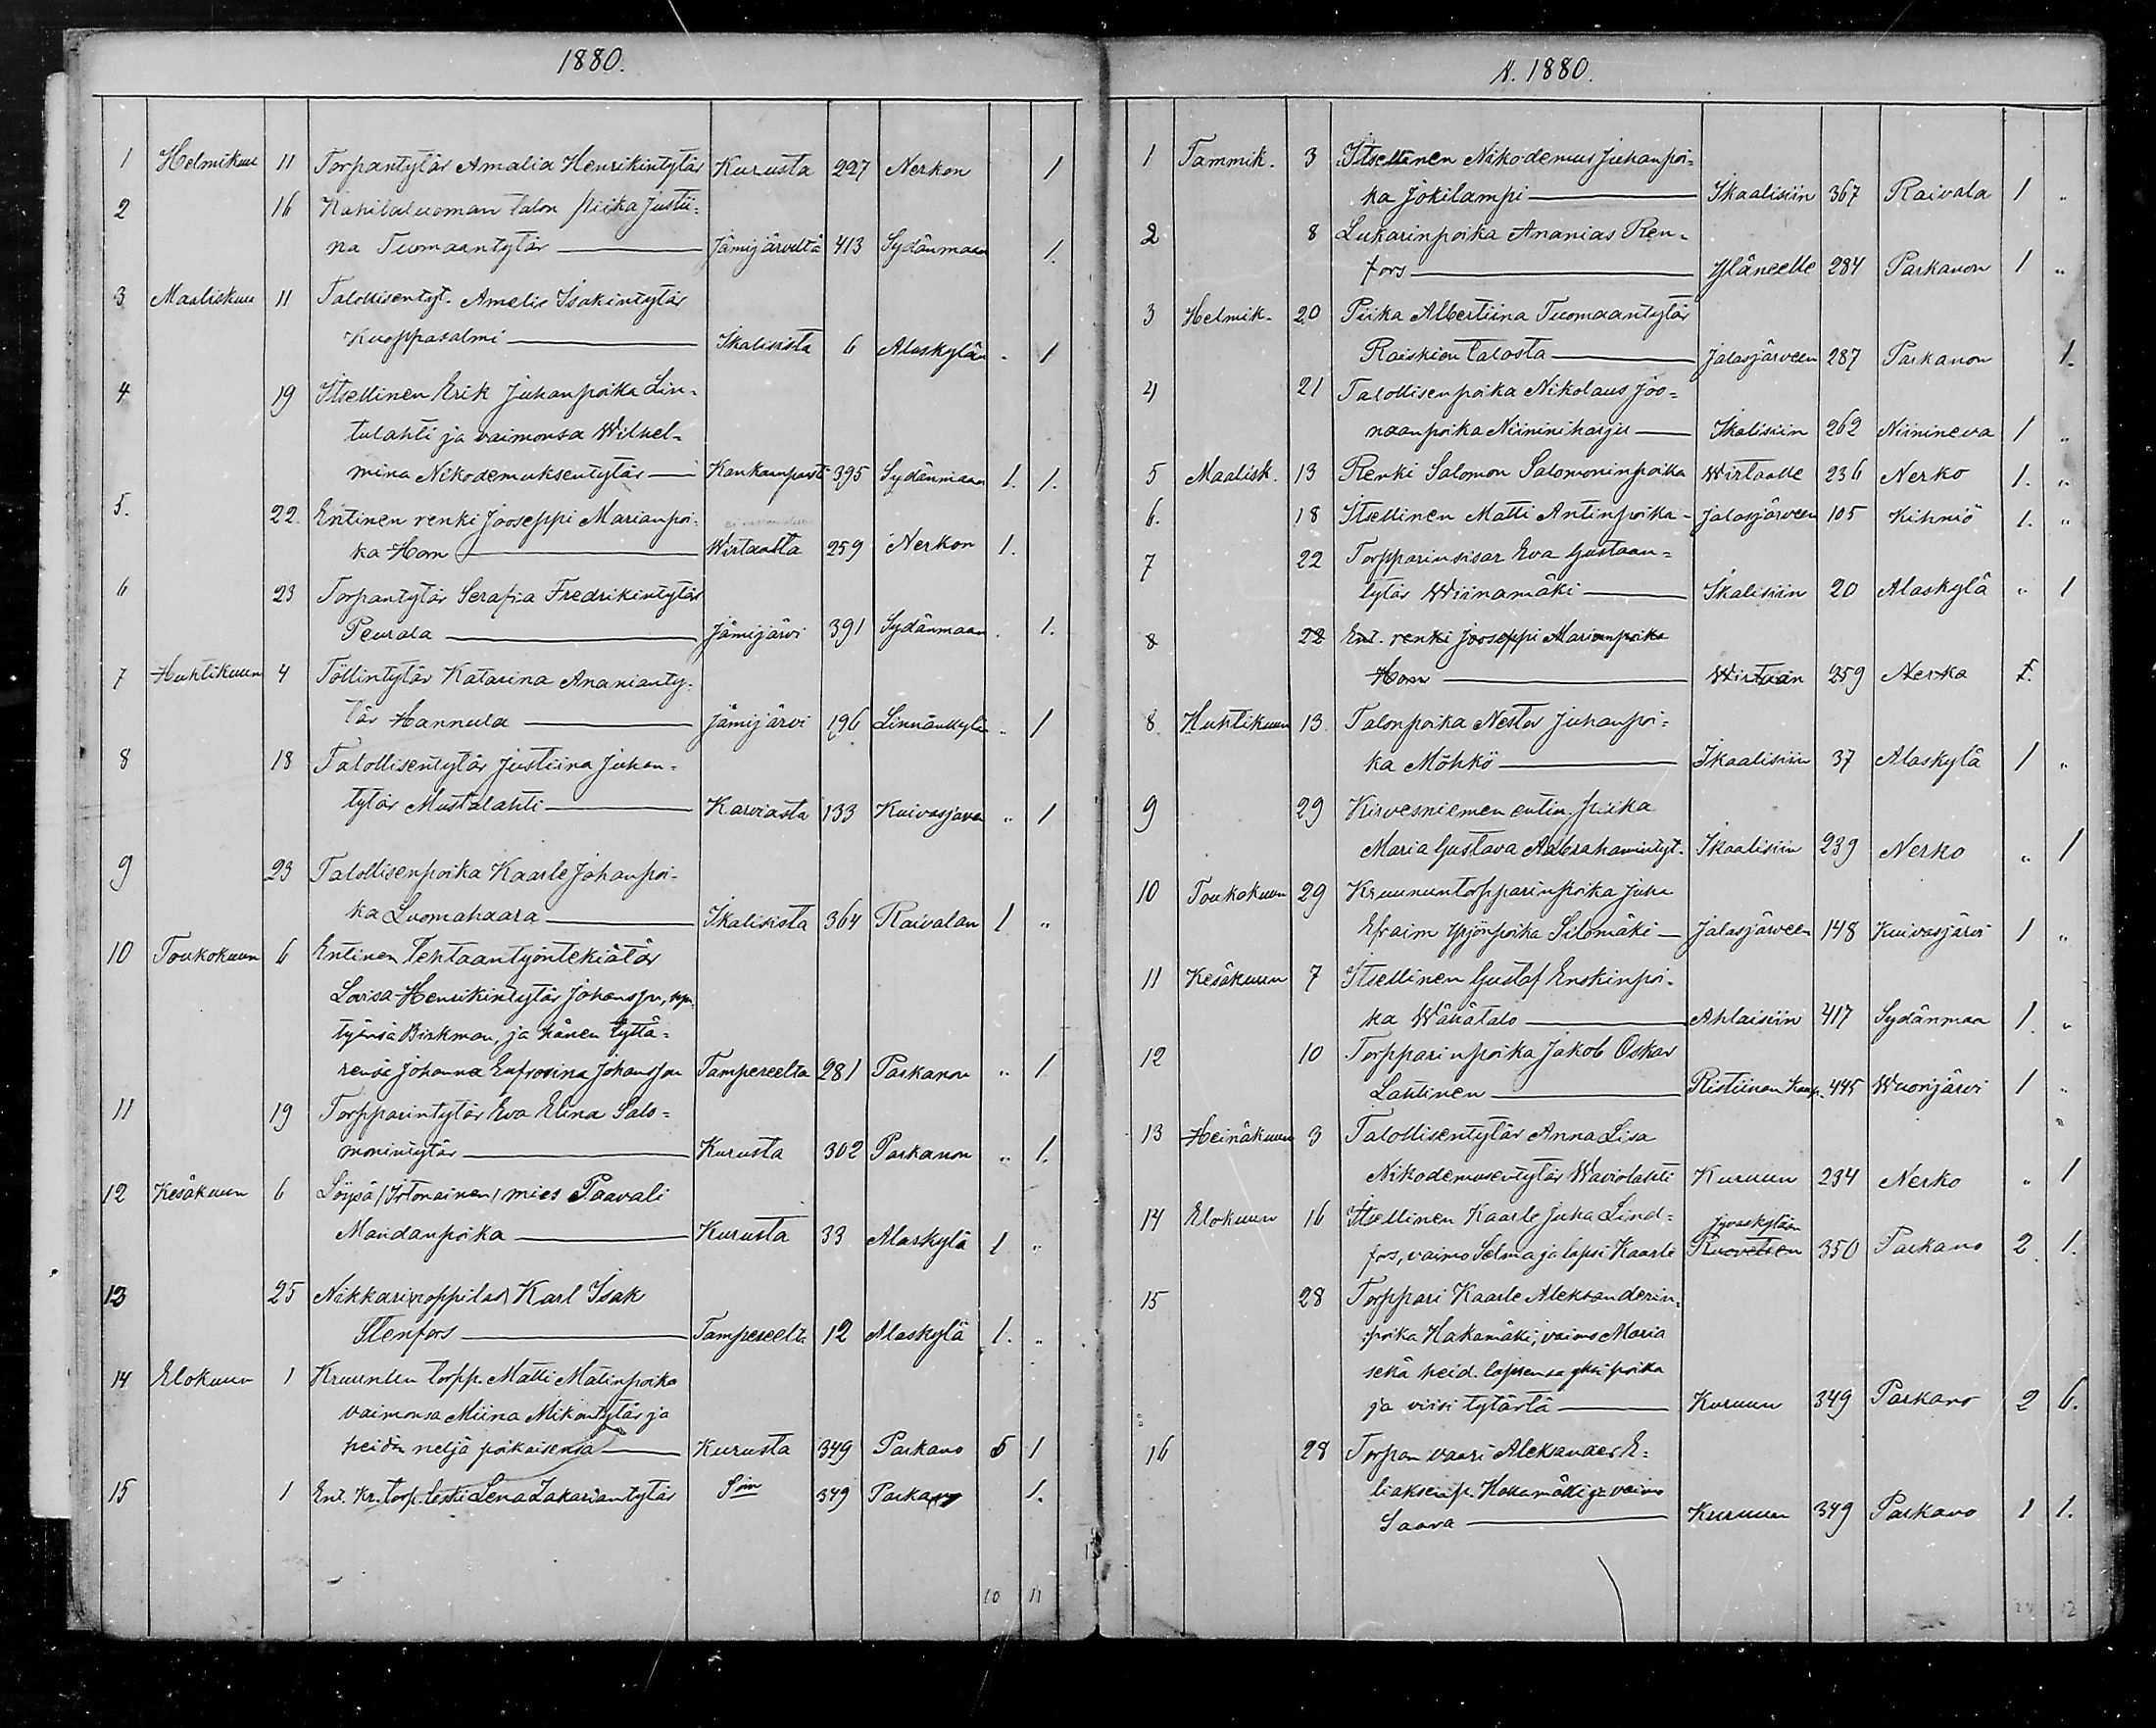 1880.
1 Helmikuu 11 Torpantytär Amalia Henrikintytär Kurusta 227 Nerkon 1
2 16 Kahilaluoman talon piika Justii-
na Tuomaantytär Jämijärveltä 413 Sydänmaan 1.
3 Maaliskuu 11 Talollisentyt. Amelie Isakintytär
Kuoppasalmi Ikalisista 6 Alaskylän " 1
4 19 Itsellinen Erik Juhanpoika Lin-
tulahti ja vaimonsa Wilhel-
mina Nikodemuksentytär Kankaanpäästä 395 Sydänmaan 1. 1.
5. 22. Entinen renki Jooseppi Marianpoi-
ka Horn Wirtaalta 259 Nerkon 1.
6 23 Torpantytär Serafia Fredrikintytär
Peurala Jämijärvi 391 Sydänmaan . 1.
7 Huhtikuun 4 Töllintytär Katarina Ananianty-
tär Hannula Jämijärvi 196 Linnankylä " 1
8 18 Talollisentytär Justiina Juhan-
tytär Mustalahti Karviasta 133 Kuivasjärven " 1
9 23 Talollisenpoika Kaarle Johanpoi-
ka Luomahaara Ikalisista 364 Raivalan 1 "
10 Toukokuun 6 Entinen Tehtaantyöntekiätär
Lovisa Henrikintytär Johansson,
Birkman, ja hänen tyttä-
rensä Johanna Eufrosina Johansson Tampereelta 281 Parkanon " 1
11 19 Torpparintytär Eva Elina Salo-
monintytär Kurusta 302 Parkanon " 1.
12 Kesäkuun 6 Löysä (Irtonainen) mies Paavali
Mandanpoika Kurusta 33 Alaskylä 1 "
13 25 Nikkarinoppilas Karl Isak
Stenfors Tampereelta 12 Alaskylä 1. "
14 Elokuun 1 Kruunun torpp. Matti Matinpoika
vaimonsa Miina Mikontytär ja
heidän neljä poikaisensa Kurusta 349 Parkano 5 1
15 1 Ent. Kr. torp. leski Lena Zakariantytär Sim 349 Parkano 1.
10 11
A. 1880.
1 Tammik. 3 Itsellinen Nikodemus Juhanpoi-
ka Jokilampi Ikaalisiin 367 Raivala 1 "
2 8 Lukarinpoika Ananias Ren-
fors Yläneelle 284 Parkanon 1 "
3 Helmik. 20 Piika Albertiina Tuomaantytär
Raiskion talosta Jalasjärveen 287 Parkanon 1.
4 21 Talollisenpoika Nikolaus Joo-
naanpoika Niininiharju Ikalisiin 262 Niinineva 1 "
5 Maalisk. 13 Renki Salomon Salomoninpoika Wirtaalle 236 Nerko 1. "
6. 18 Itsellinen Matti Antinpoika - Jalasjärveen 105 Kihniö 1. "
7 22 Torpparinsisar Eva Gustaan-
tytär Wiinamäki Ikalisiin 20 Alaskylä " 1
8 22 Ent. renki Jooseppi Marianpoika
Horn Wirtain 259 Nerko 1.
8 Huhtikuun 13 Talonpoika Nestor Juhanpoi-
ka Möhkö Ikaalisiin 37 Alaskylä 1 "
9 29 Kirvesniemen entin. piika
Maria Gustava Aabrahamintyt. Ikaalisiin 239 Nerko " 1
10 Toukokuun 29 Kruununtorpparinpoika Juha
Efraim Yrjönpoika Silomäki Jalasjärveen 148 Kuivasjärvi 1 "
11 Kesäkuun 7 Itsellinen Gustaf Enokinpoi-
ka Wähätalo Ahlaisiin 417 Sydänmaa 1. "
12 10 Torpparinpoika Jakob Oskar
Lahtinen Ristiinan Kaup. 445 Wuorijärvi 1 "
13 Heinäkuun 3 Talollisentytär Anna Lisa
Nikodemusentytär Waviolahti Kuruun 234 Nerko " 1
14 Elokuun 16 Itsellinen Kaarle Juha Lind- Jyväskylään
fors, vaimo Selma ja lapsi Kaarle Ruovetsen 350 Parkano 2 1.
15 28 Torppari Kaarle Aleksanderin-
poika Hakamäki; vaimo Maria
sekä heid. lapsensa yksi poika
ja viisi tytärtä Kuruun 349 Parkano 2 6.
16 28 Torpan vaari Aleksander E-
liaksenp. Hakamäki ja vaimo
Saara Kuruun 349 Parkano 1 1.
12